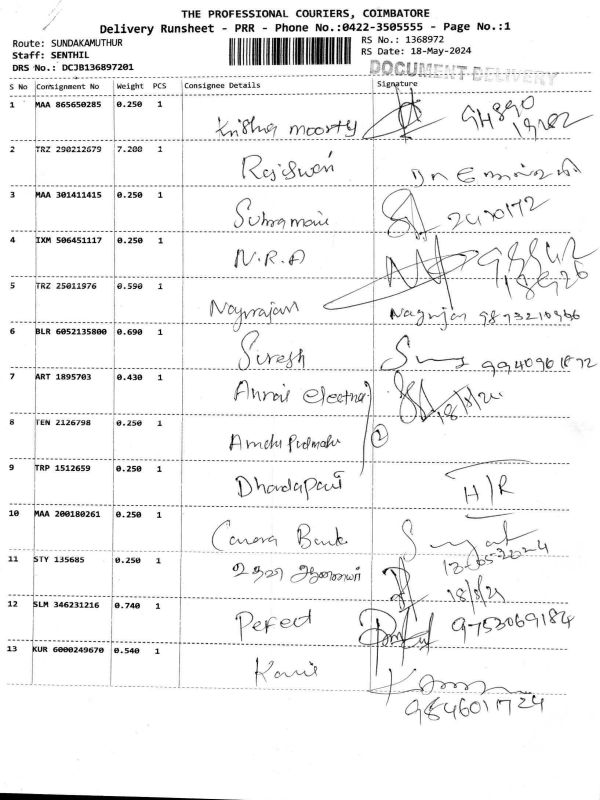 THE PROFESSIONAL COURIERS, COIMBATORE
Delivery Runsheet - PRR - Phone No.:0422-3505555 - Page No.:1
Route: SUNDAKAMUTHUR RS No.: 1368972
Staff: SENTHIL RS Date: 18-May-2024
DRS No.: DC3B136897201 DOCUMENT DELIVERY
S No Consignment No Weight PCS Consignee Details Signature
1 MAA 865650285 0.250 1
Krishna moorty
2 TRZ 290212679 7.200 1
Rajeswari
3 MAA 301411415 0.250 1
Submani
4 IXM 506451117 0.250 1
N.R.A
5 TRZ 25011976 0.590 1
Nagarajan Nagarajan 9873210966
6 BLR 6052135800 0.690 1
Suresh 9940961872
7 ART 1895703 0.430 1
18/5/24
8 TEN 2126798 0.250 1
2
9 TRP 1512659 0.250 1
Dhandapani H/R
10 MAA 200180261 0.250 1
Canara Bank
11 STY 135685 0.250 1
உதவி ஆணையர் 18/5/24
12 SLM 346231216 0.740 1
Perfect 9753069184
13 KUR 6000249670 0.540 1
9846011724